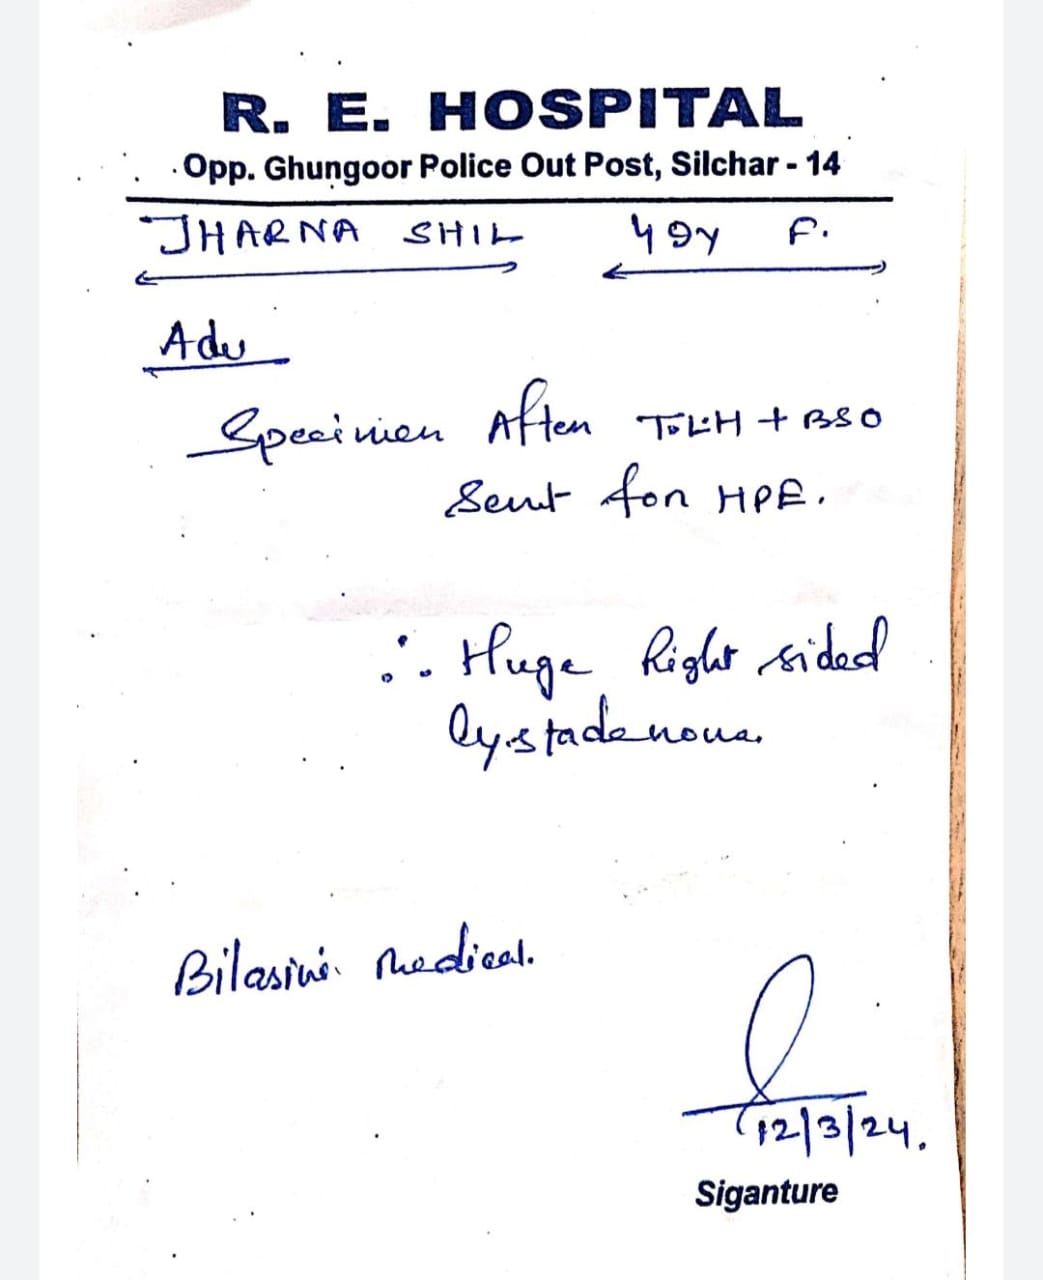 R. E. HOSPITAL
Opp. Ghungoor Police Out Post, Silchar - 14
JHARNA SHIL 49y F.
Adv
Specimen After T.L.H + BSO
Sent for HPE.
∴ Huge Right sided
Cystadenoma.
Bilasini Medical.
12/3/24.
Siganture